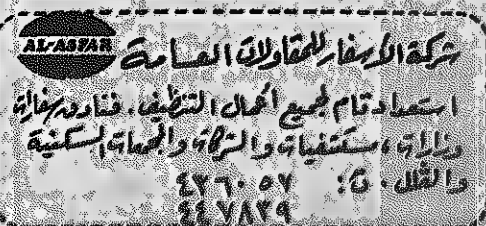 AL-ASFAR
شركة الأسفار للمقاولات العامة
استعداد تام لجميع أعمال التنظيف، فنادق سفارات
وزارات، مستشفيات والشركات والمجمعات السكنية
والفلل. ت: ٤٣٦٠٥٧
٤٤٧٨٣٩